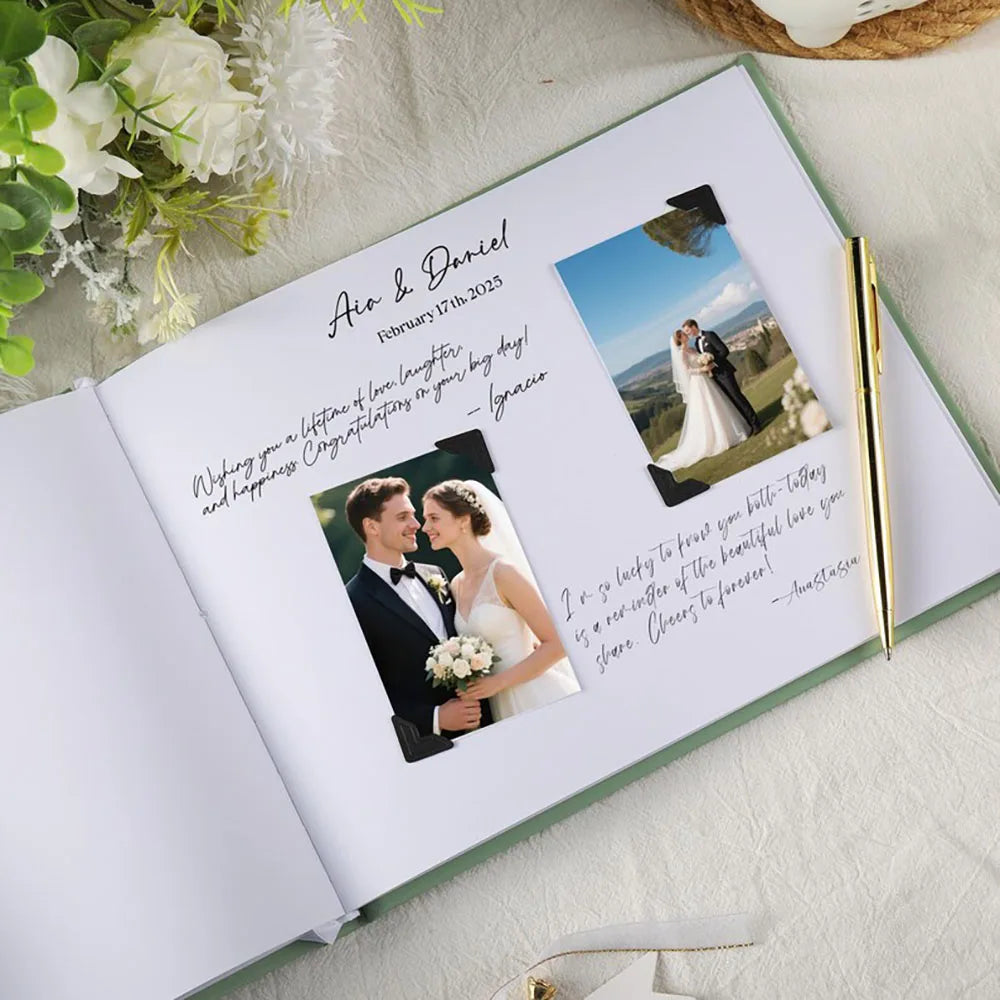 Aia & Daniel
February 17th, 2025
Wishing you a lifetime of love, laughter,
and happiness. Congratulations on your big day!
— Ignacio
I'm so lucky to know you both-today
is a reminder of the beautiful love you
share. Cheers to forever!
-Anastasia